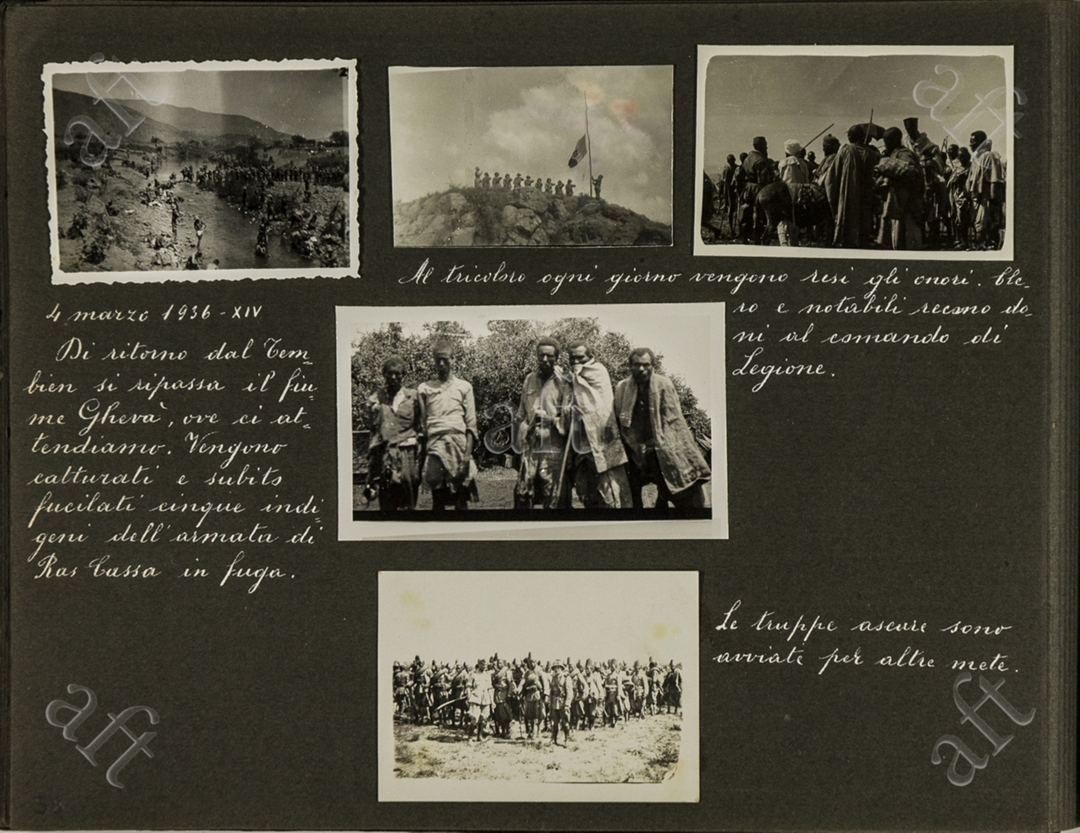 4 marzo 1936-XIV
Di ritorno dal Tem=
bien si ripassa il fiu=
me Ghevà, ove ci at=
tendiamo. Vengono
catturati e subito
fucilati cinque indi=
geni dell'armata di
Ras Cassa in fuga.
Al tricolore ogni giorno vengono resi gli onori. Cle-
ro e notabili recano do-
ni al comando di
Legione.
Le truppe ascare sono
avviate per altre mete.
aft
aft
aft
aft
aft